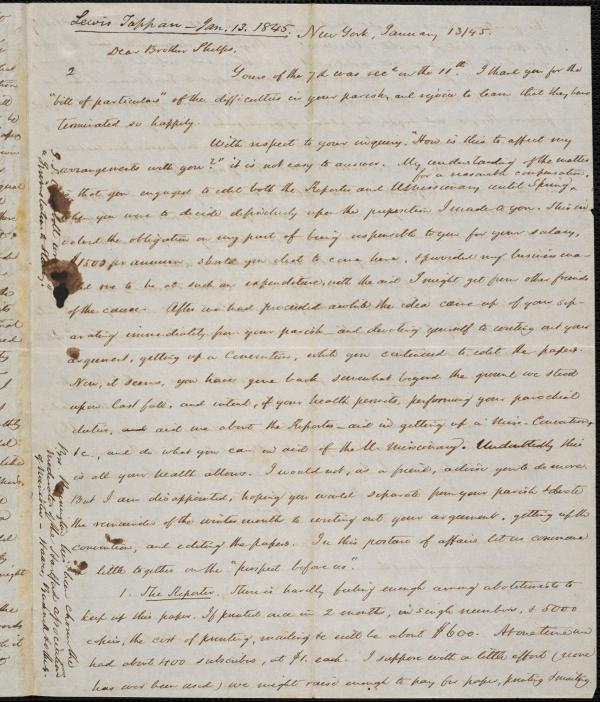 Lewis Tappan - Jan. 13. 1845.
New York, January 13/45.
Dear Brother Phelps,
2
Yours of the 7th was recd on the 11th. I thank you for the
"bill of particulars" of the difficulties in your parish, and rejoice to learn that they have
terminated so happily.
With respect to your inquiry, "How is this to affect my
arrangements with you?" it is not easy to answer. My understanding of the matter
for a reasonable compensation,
is that you engaged to edit both the Reporter and U Missionary until Spring,
when you were to decide definitively upon the proposition I made to you. This in-
volved the obligation on my part of being responsible to you for your salary,
$1500 per annum, should you elect to come here, & provided my business ena-
bled me to be at such an expenditure, with the aid I might get from other friends
of the cause. After we had proceeded awhile the idea came up of your sep-
arating immediately from your parish - and devoting yourself to writing out your
argument, getting up a Convention, while you continued to edit the papers.
Now, it seems, you have gone back somewhat beyond the ground we stood
upon last fall, and intend, if your health permits, performing your parochial
duties, and aid me about the Reporter - aid in getting up a Miss. Convention,
&c, and do what you can in aid of the U. Missionary. Undoubtedly this
is all your health allows. I would not, as a friend, advise you to do more.
But I am disappointed, hoping you would separate from your parish & devote
the remainder of the winter month to writing out your argument, getting up the
convention, and editing the papers. In this posture of affairs let us commune
a little together on the "prospect before us".
1. The Reporter. There is hardly feeling enough among abolitionists to
keep up this paper. If printed once in 2 months, in 5 eigh numbers, & 5000
copies, the cost of printing, mailing &c will be about $600. At one time we
had about 400 subscribers, at $1. each. I suppose with a little effort (none
has ever been used) we might raise enough to pay for paper, printing & mailing.
Bro. has been chosen the
moderator of the Association
of Ministers